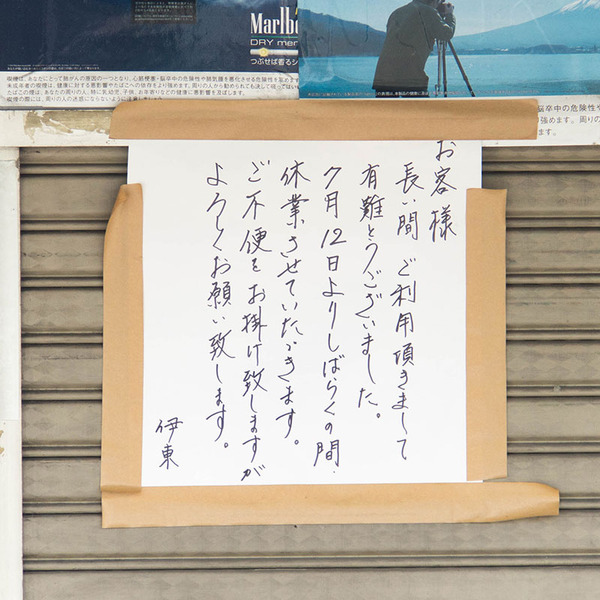 Marlb
DRY men
つぶせば香るシ
喫煙は、あなたにとって肺がんの原因の一つとなり、心筋梗塞・脳卒中の危険性や肺気腫を悪化させる危険性を高め
未成年者の喫煙は、健康に対する悪影響やたばこへの依存をより強めます。周りの人から勧められても決して吸ってはいけ
たばこの煙は、あなたの周りの人、特に乳幼児、子供、お年寄りなどの健康に悪影響を及ぼします。
喫煙の際には、周りの人の迷惑にならないように
脳卒中の危険性や
強めます。周りの
お客様
長い間 ご利用頂きまして
有難とうございました。
7月12日よりしばらくの間
休業させていただきます。
ご不便をお掛け致しますが
よろしくお願い致します。
伊東